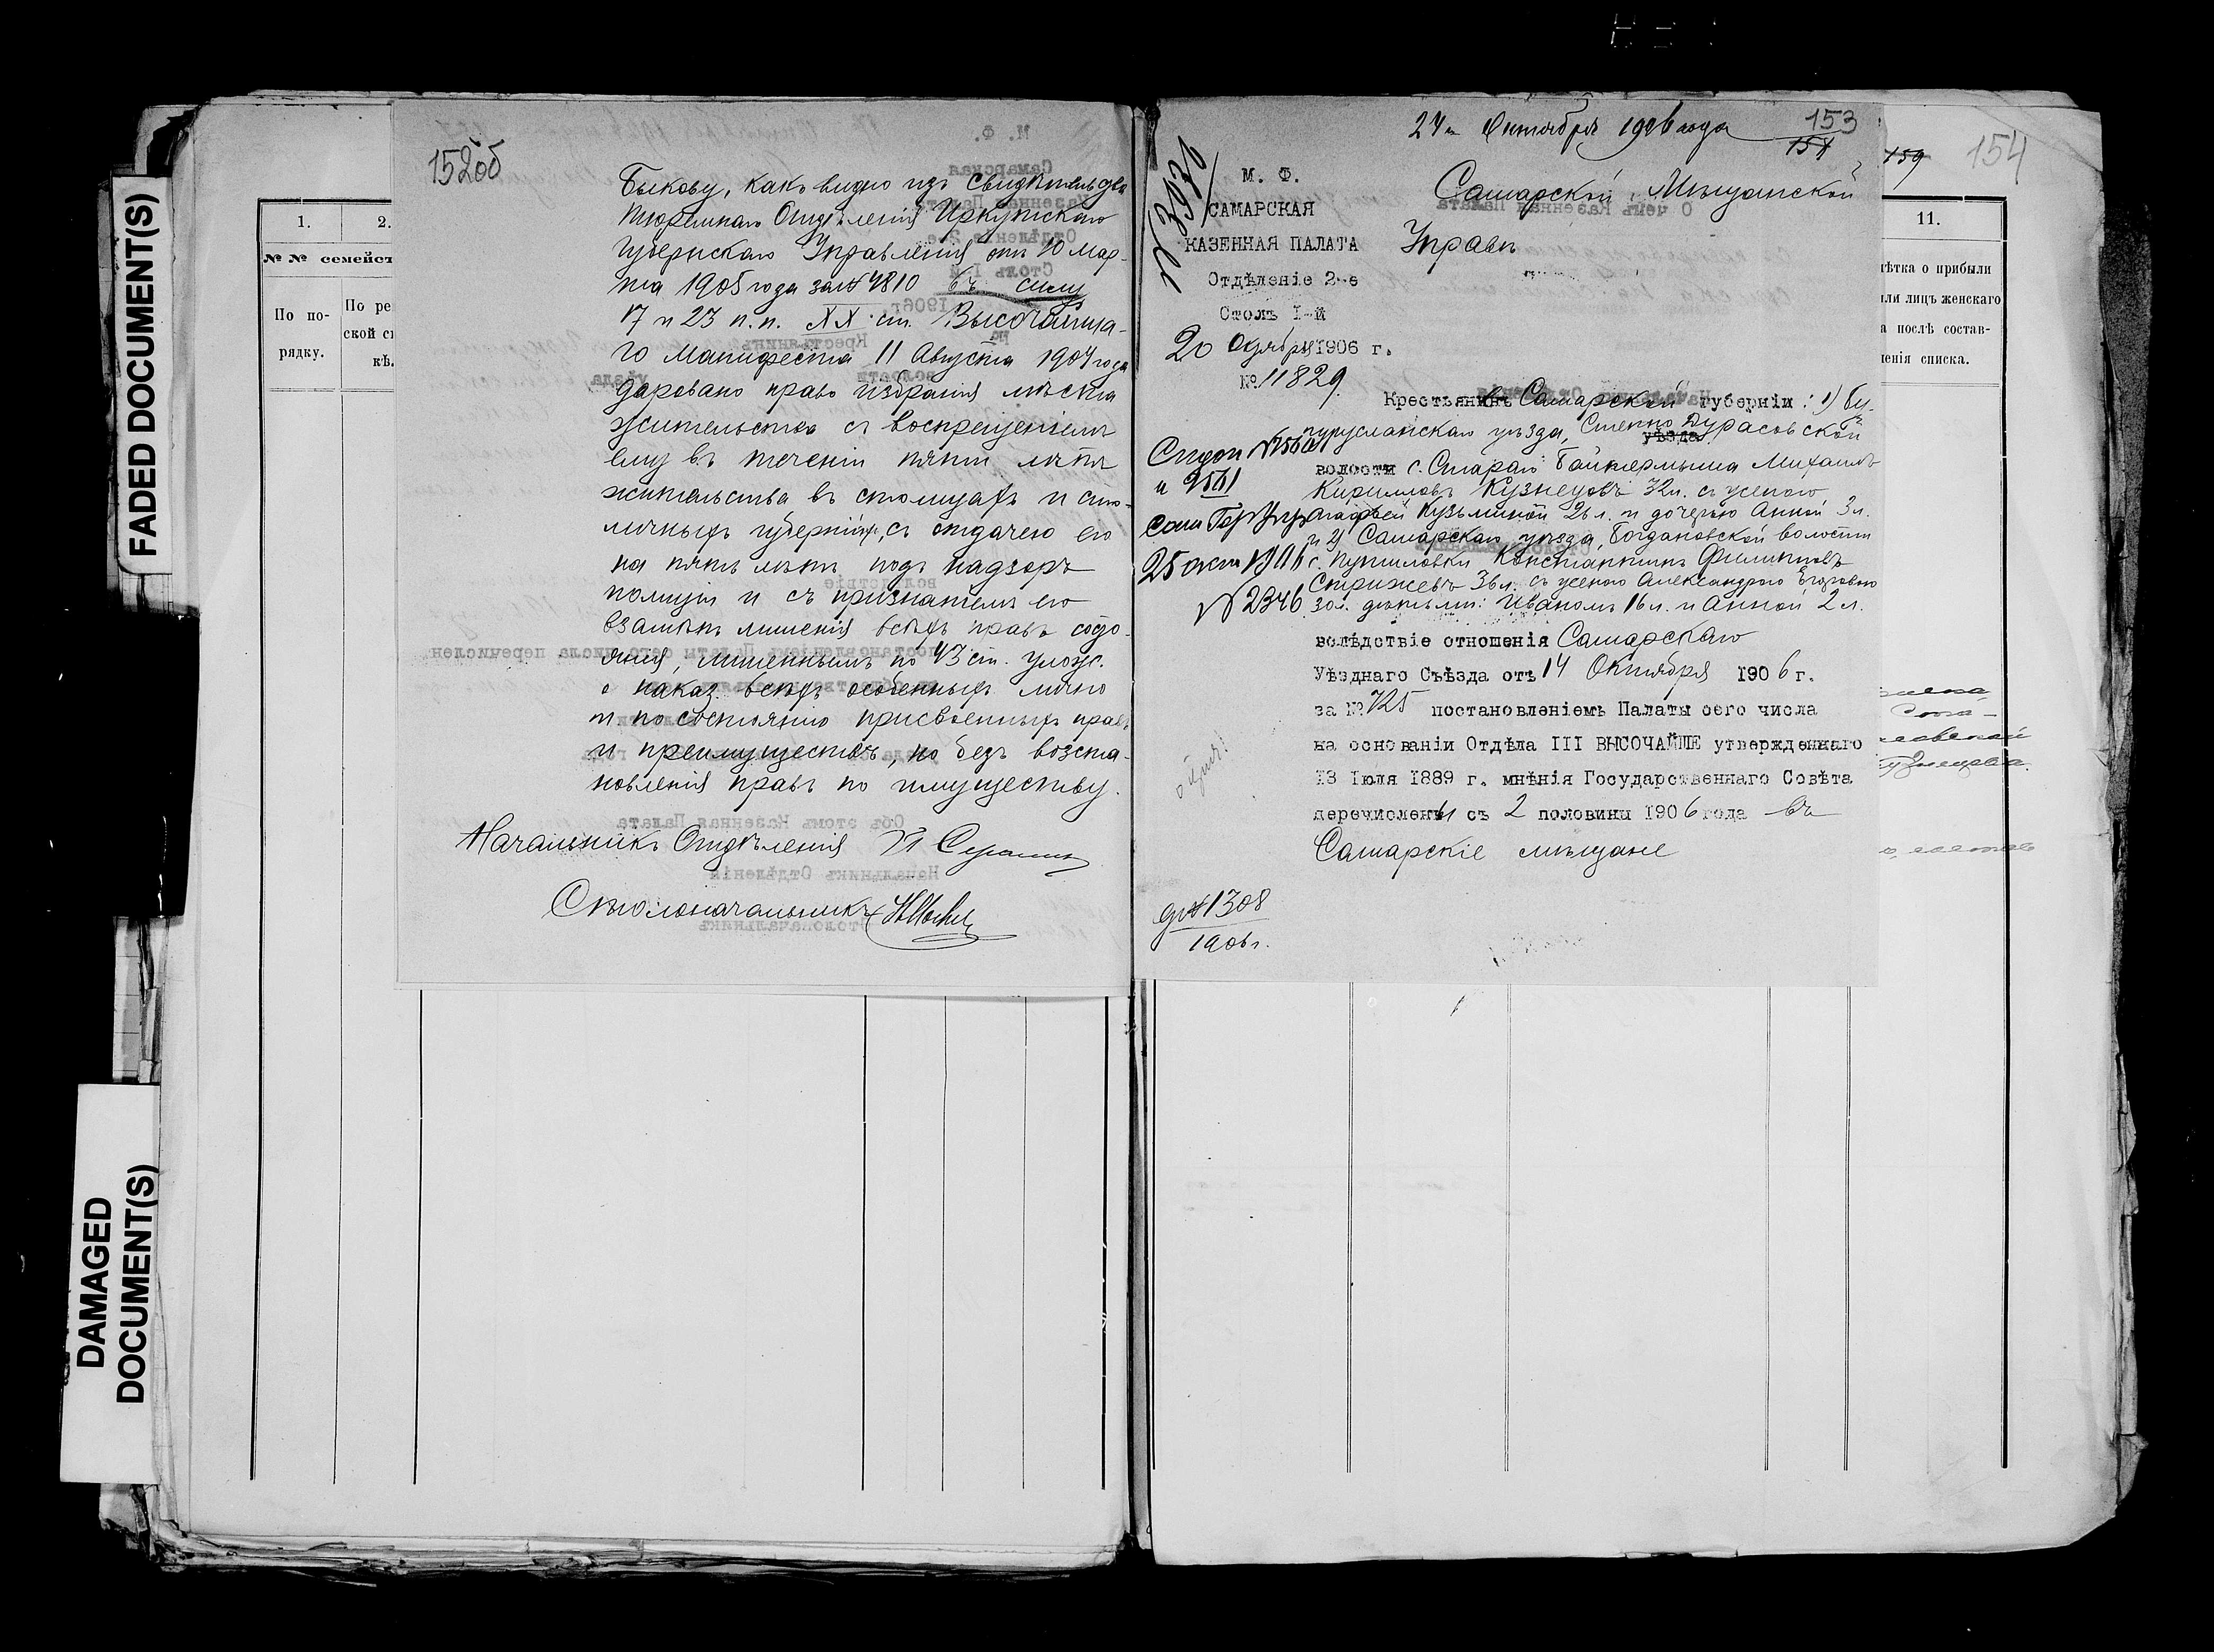 FADED DOCUMENT(S)
DAMAGED
DOCUMENT(S)
1.
2.
№ № семейст
По по-
рядку.
По ре
ской сп
кѣ.
152об
Быкову, какъ видно изъ свидѣтельства
Тюремнаго Отдѣленія Иркутскаго
Губернскаго Управленія отъ 10 мар-
та 1905 года за № 4810 въ силу
17 и 23 п.п. XX ст. Высочайша-
го Манифеста 11 Августа 1904 года
даровано право избранія мѣста
жительства съ воспрещеніемъ
ему въ теченіи пяти лѣтъ
жительства въ столицахъ и сто-
личныхъ губерніяхъ, съ отдачею его
на пять лѣтъ подъ надзоръ
полиціи и съ признаніемъ его
взамѣнъ лишенія всѣхъ правъ состо-
янія, лишеннымъ по 43 ст. улож.
о наказ. всѣхъ особенныхъ лично
и по состоянію присвоенныхъ правъ
и преимуществъ, но безъ возста-
новленія правъ по имуществу.
Начальникъ Отдѣленія
Столоначальникъ
24 Октября 1906 года
153
154
159
154
№ 3930
М. Ф.
САМАРСКАЯ
КАЗЕННАЯ ПАЛАТА
Отдѣленіе 2-е
Столъ I-й
20 Октября 1906 г.
№ 11829
Самарской Мѣщанской
Управѣ
Крестьянинъ Самарской губерніи: 1) Бу-
гурусланскаго уѣзда, Степно Дурасовской
уѣзда
волости с. Стараго Байтермыша Михаилъ
Кирилловъ Кузнецовъ 32 л. съ женою
Агафьей Кузьминой 26 л. и дочерью Анной 3 л.
и 2) Самарскаго уѣзда, Богдановской волости
с. Путиловки Константинъ Филипповъ
Стрижевъ 36 л. съ женою Александрою Егоровою
30 л. дѣтьми: Иваномъ 16 л. и Анной 2 л.
вслѣдствіе отношенія Самарскаго
Уѣзднаго Съѣзда отъ 14 Октября 1906 г.
за № 725 постановленіемъ Палаты сего числа
на основаніи Отдѣла III ВЫСОЧАЙШЕ утвержденнаго
13 Іюля 1889 г. мнѣнія Государственнаго Совѣта
перечислены съ 2 половины 1906 года въ
Самарскіе мѣщане
25 окт
№ 2346
д № 1308
1906 г.
11.
ѣтка о прибыли
ли лицъ женскаго
а послѣ состав-
ленія списка.